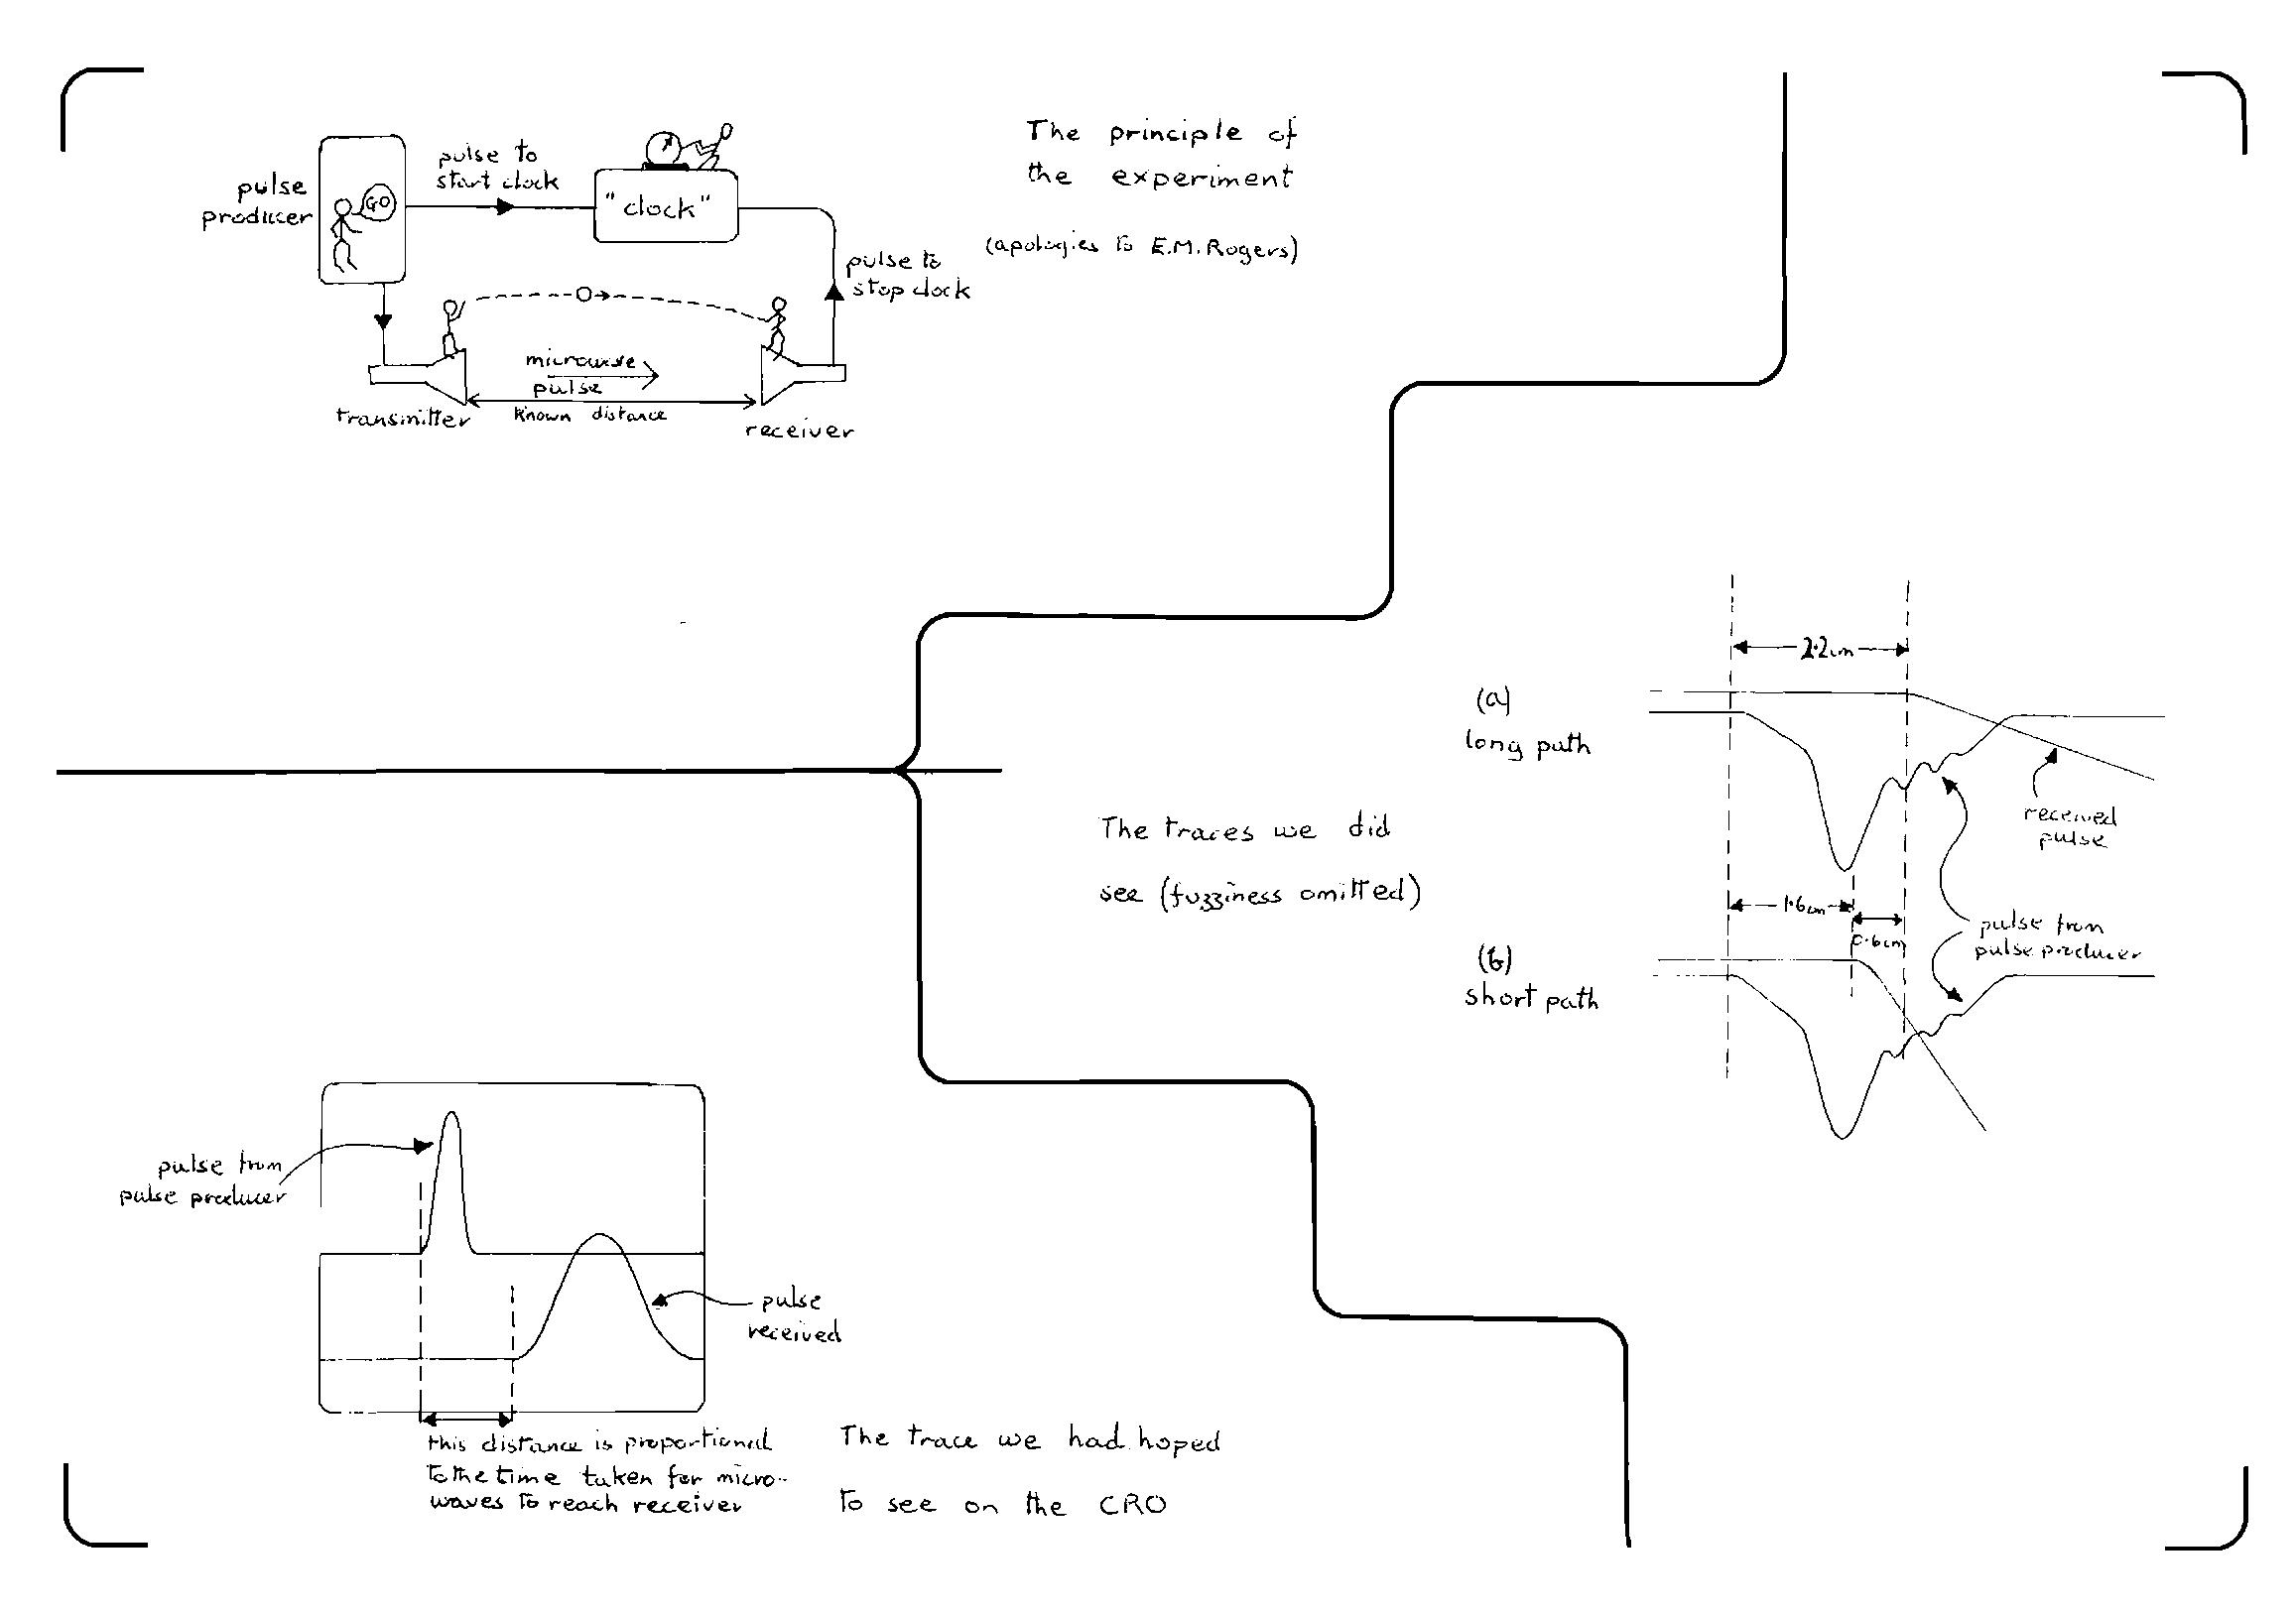 The principle of
the experiment
(apologies to E.M. Rogers)
pulse
producer
GO
pulse to
start clock
"clock"
pulse to
stop clock
microwave
pulse
known distance
transmitter
receiver
2.2cm
(a)
long path
received
pulse
The traces we did
see (fuzziness omitted)
1.6cm
0.6cm
pulse from
pulse producer
(b)
short path
pulse from
pulse producer
pulse
received
this distance is proportional
to the time taken for micro-
waves to reach receiver
The trace we had hoped
to see on the CRO